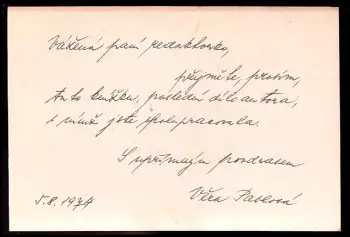 Vážená paní redaktorko,
přijměte, prosím,
tuto knížku, poslední dílo autora,
s nímž jste spolupracovala.
S upřímným pozdravem
5.8.1974
Věra Pavlová